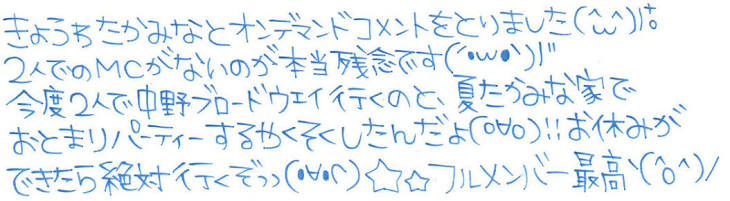 きょうちたかみなとオンデマンドコメントをとりました(^ω^)!!
2人でのMCがないのが本当残念です(´・ω・`)!!
今度2人で中野ブロードウェイ行くのと、夏たかみな家で
おとまりパーティーするやくそくしたんだよ(o∀o)!!お休みが
できたら絶対行くぞっっ(・∀・)☆☆フルメンバー最高ヽ(^o^)/